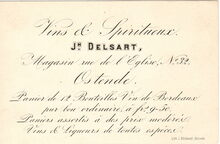 Vins & Spiritueux.
Jn DELSART,
Magasin rue de l'Eglise, No 32.
Ostende.
Panier de 12 Bouteilles Vin de Bordeaux
pur bon ordinaire, à fr. 9-50.
Paniers assortis à des prix modérés
Vins & Liqueurs de toutes espèces.